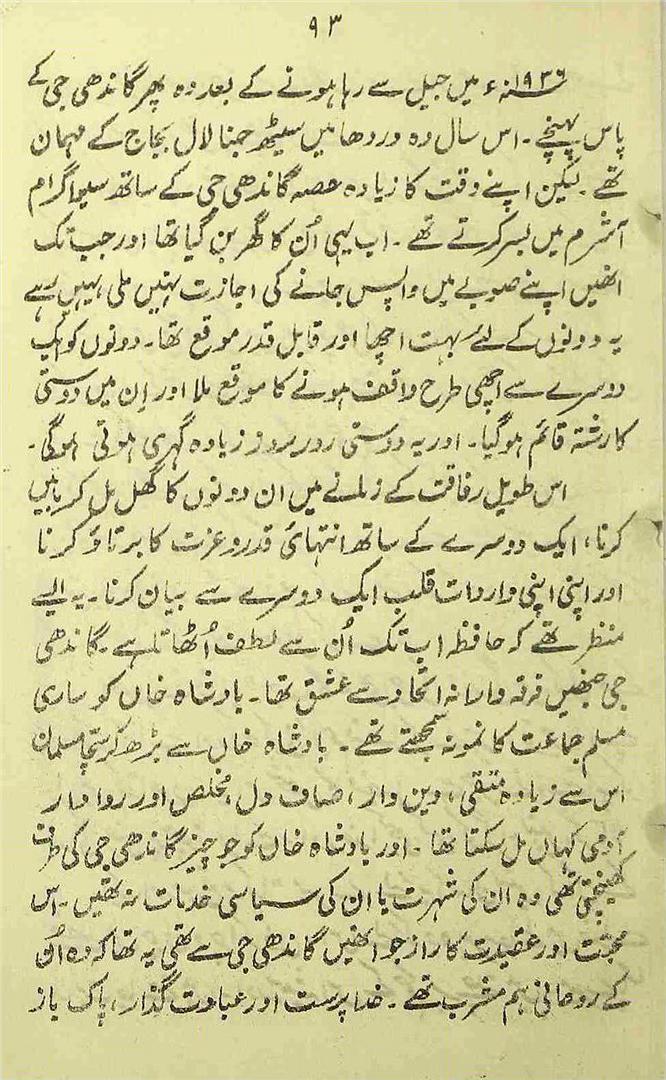 ۹۳
۱۹۳۶ء میں جیل سے رہا ہونے کے بعد وہ پھر گاندھی جی کے
پاس پہنچے۔ اس سال وہ وردھا میں سیٹھ جمنا لال بجاج کے مہمان
تھے۔ لیکن اپنے وقت کا زیادہ حصہ گاندھی جی کے ساتھ سیواگرام
آشرم میں بسر کرتے تھے۔ اب یہی اُن کا گھر بن گیا تھا اور جب تک
انھیں اپنے صوبے میں واپس جانے کی اجازت نہیں ملی یہیں رہے
یہ دونوں کے لئے بہت اچھا اور قابل قدر موقع تھا۔ دونوں کو ایک
دوسرے سے اچھی طرح واقف ہونے کا موقع ملا اور اِن میں دوستی
کا رشتہ قائم ہوگیا۔ اور یہ دوستی روز بروز زیادہ گہری ہوتی ہوگی۔
اس طویل رفاقت کے زمانے میں ان دونوں کا گھل مل کر باتیں
کرنا، ایک دوسرے کے ساتھ انتہائی قدر و عزت کا برتاؤ کرنا
اور اپنی اپنی واردات قلب ایک دوسرے سے بیان کرنا۔ یہ ایسے
منظر تھے کہ حافظہ اب تک اُن سے لطف اُٹھاتا ہے۔ گاندھی
جی جنھیں فرقہ وارانہ اتحاد سے عشق تھا۔ بادشاہ خاں کو ساری
مسلم جماعت کا نمونہ سمجھتے تھے۔ بادشاہ خاں سے بڑھ کر سچا مسلمان
اس سے زیادہ متقی، دین دار، صاف دل، مخلص اور روادار
آدمی کہاں مل سکتا تھا۔ اور بادشاہ خاں کو جو چیز گاندھی جی کی طرف
کھینچتی تھی وہ ان کی شہرت یا ان کی سیاسی خدمات نہ تھیں۔ اس
محبت اور عقیدت کا راز جو انھیں گاندھی جی سے تھی یہ تھا کہ وہ اُن
کے روحانی ہم مشرب تھے۔ خدا پرست اور عبادت گذار، پاک باز